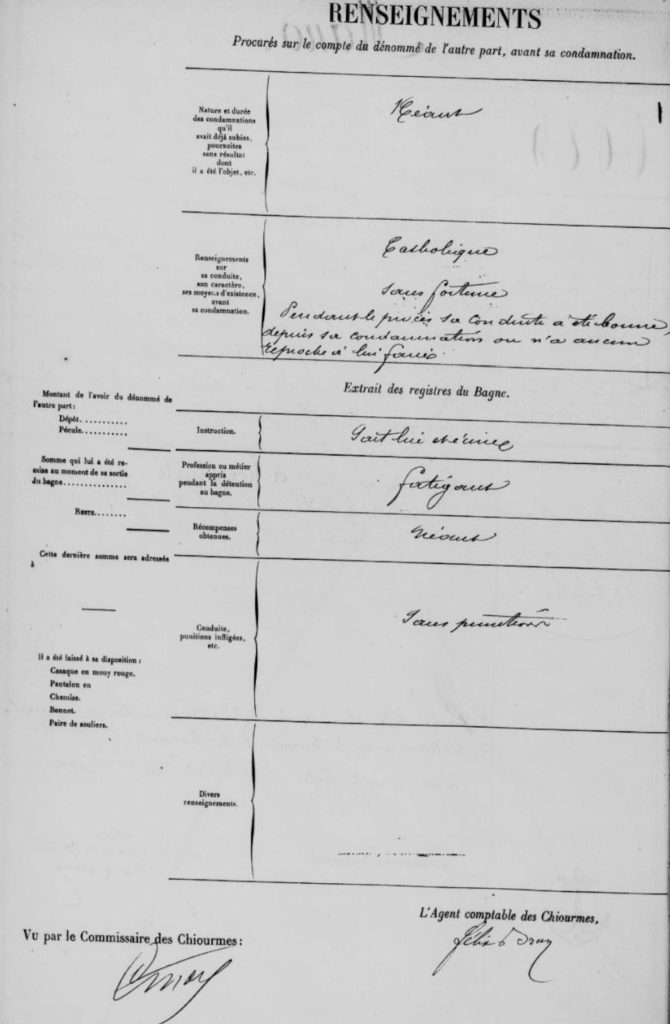 RENSEIGNEMENTS
Procurés sur le compte du dénommé de l'autre part, avant sa condamnation.
Nature et durée
des condamnations
qu'il
avait déjà subies,
poursuites
sans résultat
dont
il a été l'objet, etc.
Néant
Renseignements
sur
sa conduite,
son caractère,
ses moyens d'existence,
avant
sa condamnation.
Catholique
sans fortune
Pendant le procès sa conduite a été bonne,
depuis sa condamnation on n'a aucun
reproche à lui faire.
Extrait des registres du Bagne.
Montant de l'avoir du dénommé de
l'autre part :
Dépôt..........
Pécule..........
Instruction.
Sait lire et écrire
Somme qui lui a été re-
mise au moment de sa sortie
du bagne..............
Profession ou métier
appris
pendant la détention
au bagne.
fatigant
Reste.......
Récompenses
obtenues.
Néant
Cette dernière somme sera adressée
à
Conduite,
punitions infligées,
etc.
Sans punition
Il a été laissé à sa disposition :
Casaque en mouy rouge.
Pantalon en
Chemise.
Bonnet.
Paire de souliers.
Divers
renseignements.
L'Agent comptable des Chiourmes,
Vu par le Commissaire des Chiourmes :